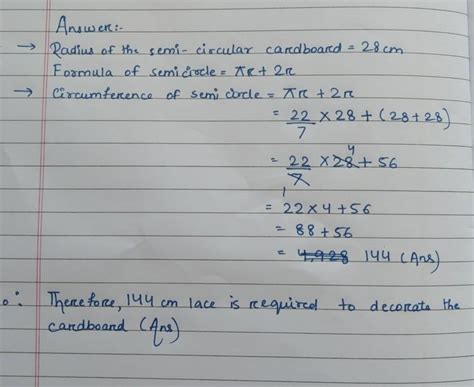 Answer:-
→ Radius of the semi-circular cardboard = 28cm
Formula of semicircle = πr + 2r
→ Circumference of semi circle = πr + 2r
= 22/7 × 28 + (28+28)
= 22/7 × 28 4 + 56
1
= 22×4+56
= 88+56
= 4,928 144 (Ans)
∴ Therefore, 144 cm lace is required to decorate the
cardboard (Ans)